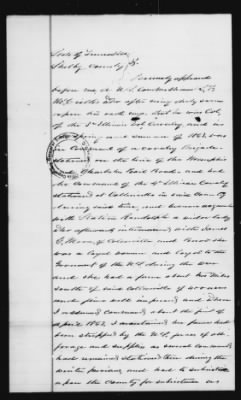 State of Tennessee
Shelby County
Personally appeared
before me
who after being duly sworn
upon his oath says that he was Col
of the 3d Illinois Cavalry and in
spring and summer of 1863 was
in Command of a cavalry Brigade
stationed on the line of the Memphis
and Charleston Rail Road and had
the Command of the Illinois Cavalry
stationed at Collierville in said County
During said time, and became acquainted
with Randolph a widow lady
who afterwards intermarried with James
Moore, of Collierville and that she
was a loyal woman and loyal to the
Government of the US during the war
and she had a farm about two miles
south of said Collierville of 400 acres
much of same well improved and when
I assumed command about the first of
April 1863, I ascertained her farm had
been stripped by the U.S. forces of all
forage and supplies as several commands
had remained stationed there during the
winter previous and had to subsist
upon the Country for subsistence as